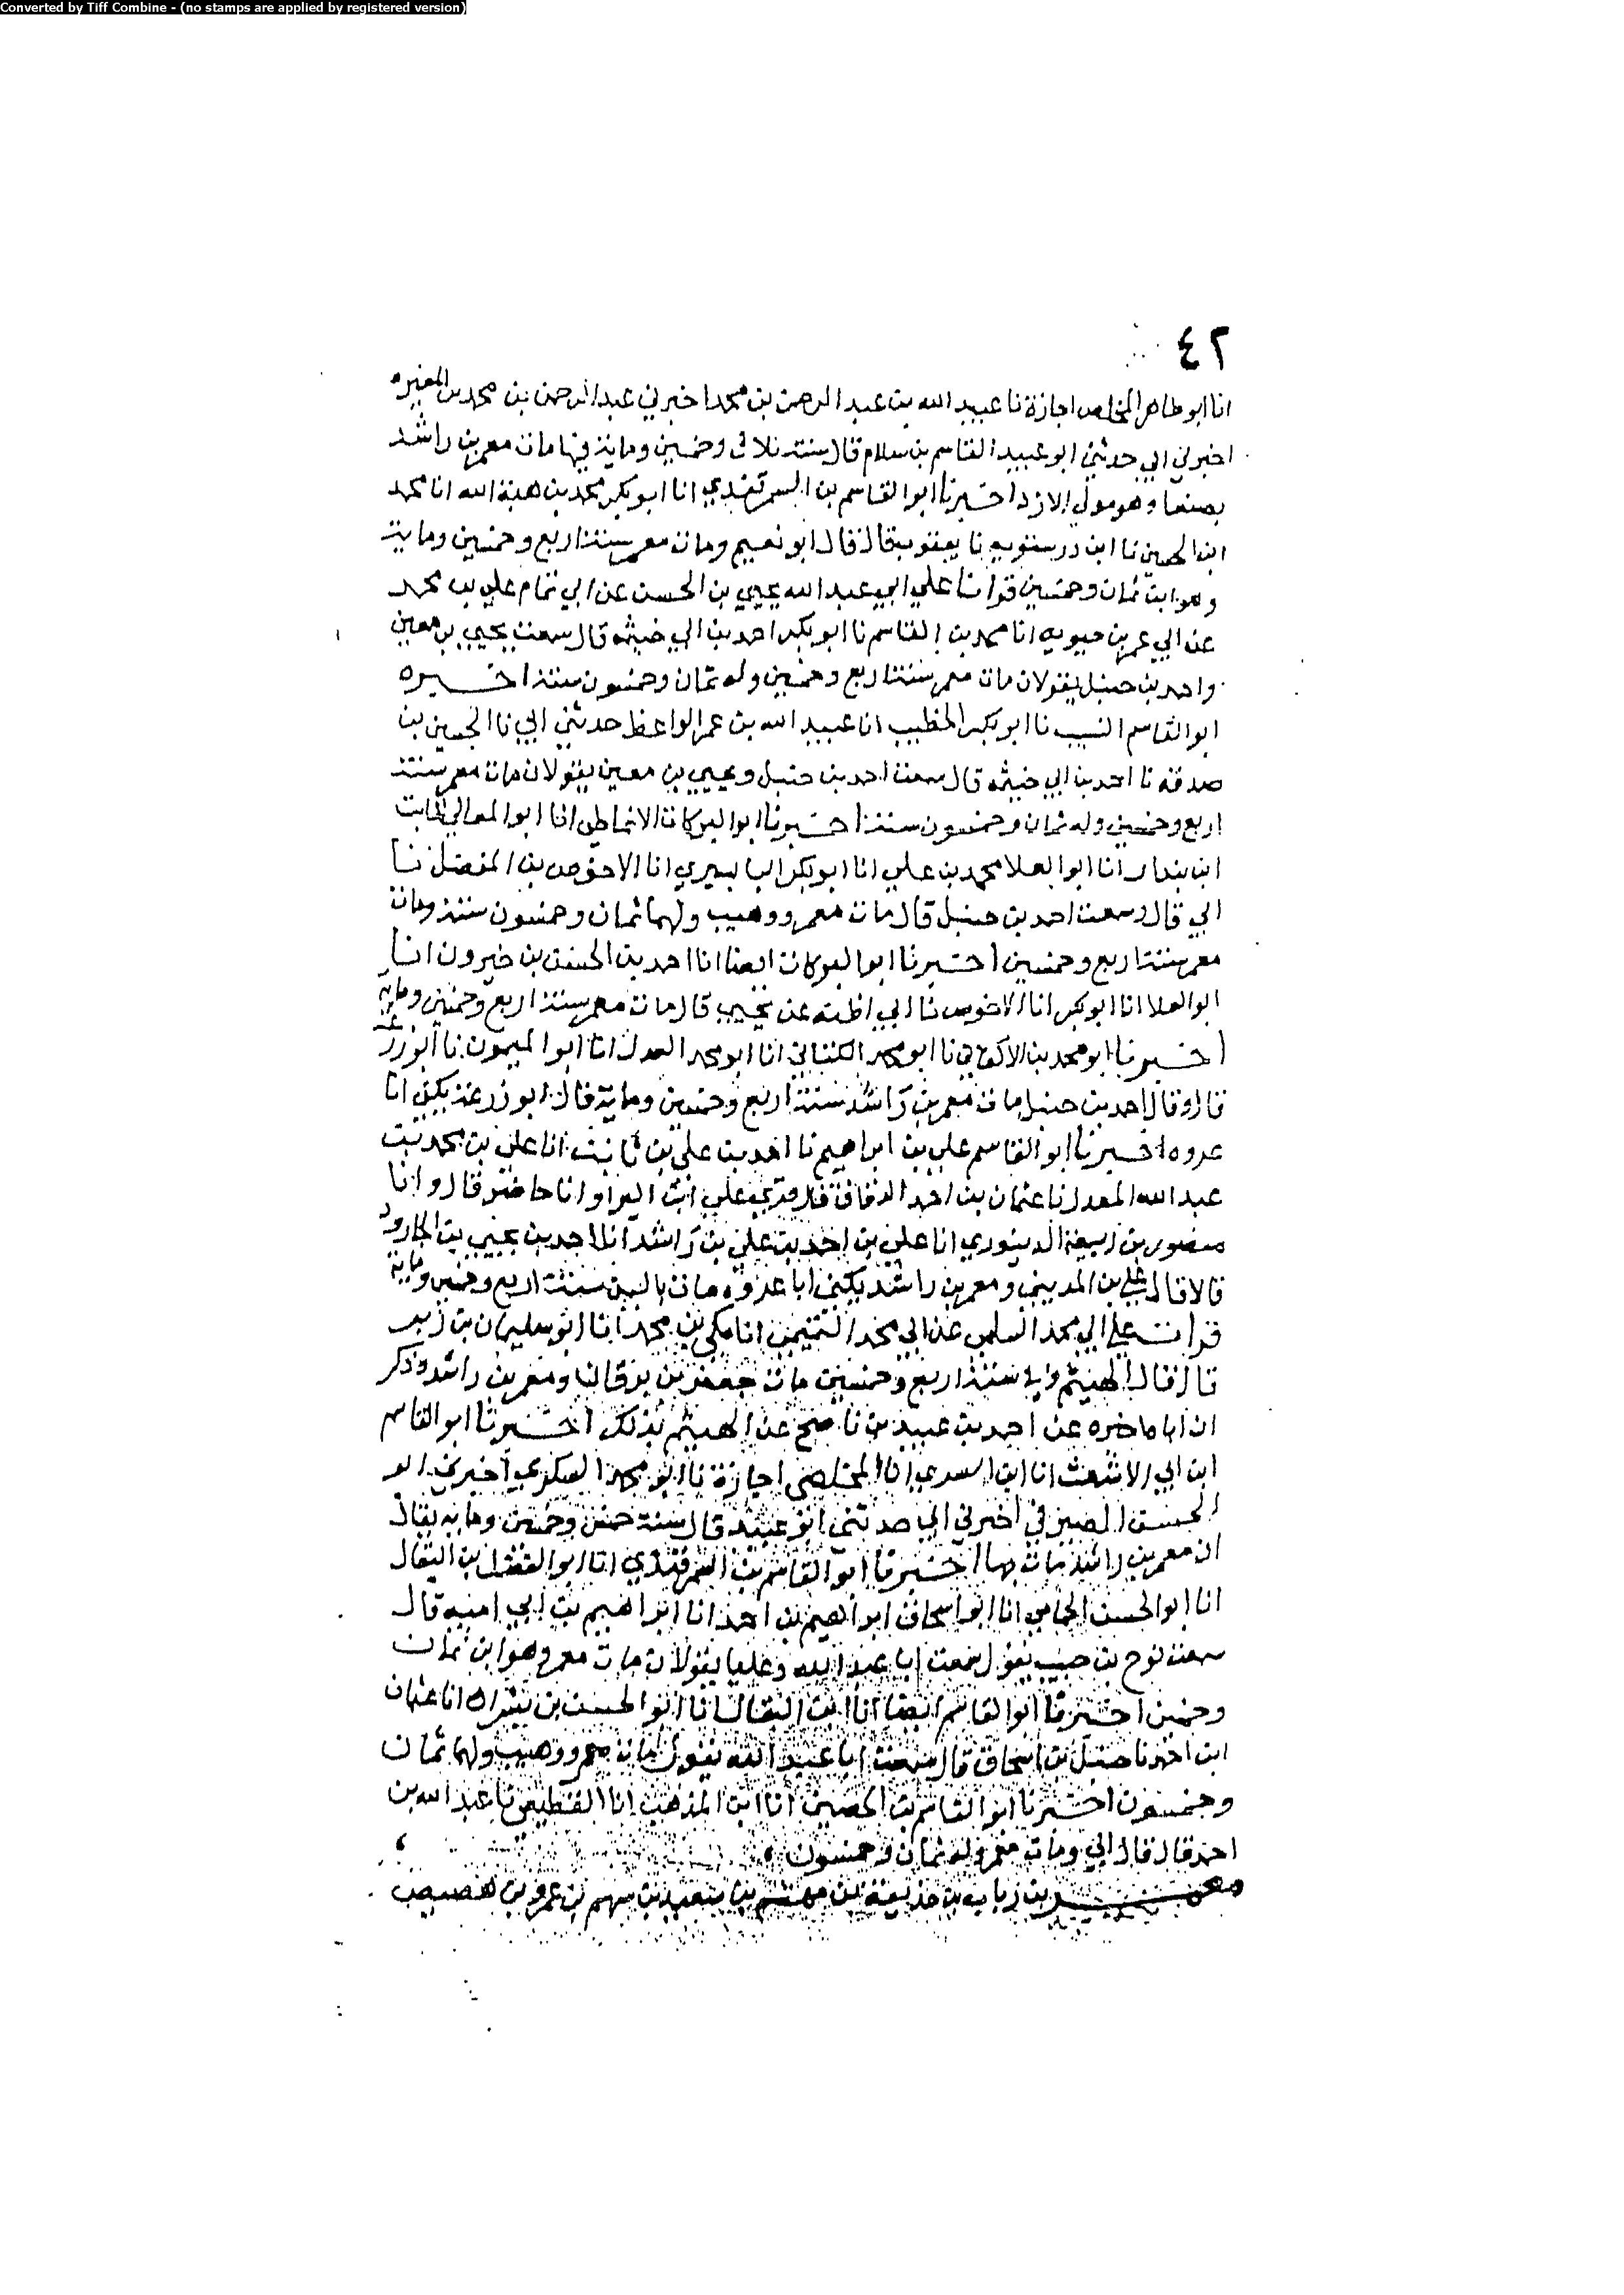 Converted by Tiff Combine - (no stamps are applied by registered version)
٤٢
انا ابو طاهر المخلص اجازة نا عبيد الله بن عبد الرحمن بن محمد اخبرني عبد الرحمن بن محمد بن المغيره
اخبرني ابي حدثني ابو عبيد القاسم بن سلام قال سنة ثلاث وخمسين وماية فيها مات معمر بن راشد
بصنعا وهو مولى الازد اخبرنا ابو القاسم بن السمرقندي انا ابو بكر محمد بن هبة الله انا محمد
ابن الحسين نا ابن درستويه نا يعقوب قال قال ابو نعيم ومات معمر سنة اربع وخمسين وماية
وهو ابن ثمان وخمسين قرانا علي ابي عبد الله يحيي بن الحسن عن ابي تمام علي بن محمد
عن ابي عمر بن حيويه انا محمد بن القاسم نا ابو بكر احمد بن ابي خيثمه قال سمعت يحيي بن معين
واحمد بن حنبل يقولان مات معمر سنة اربع وخمسين وله ثمان وخمسون سنة اخبره
ابو القاسم النسيب نا ابو بكر الخطيب انا عبيد الله بن عمر الواعظ حدثني ابي نا الحسين بن
صدقه نا احمد بن ابي خيثمه قال سمعت احمد بن حنبل ويحيي بن معين يقولان مات معمر سنة
اربع وخمسين وله ثمان وخمسون سنة اخبرنا ابو البركات الانماطي انا ابو المعالي ثابت
ابن بندار انا ابو العلا محمد بن علي انا ابو بكر البابسيري انا الاحوص بن المفضل نا
ابي قال وسمعت احمد بن حنبل قال مات معمر ووهيب ولهما ثمان وخمسون سنة ومات
معمر سنة اربع وخمسين اخبرنا ابو البركات ايضا انا احمد بن الحسن بن خيرون انا
ابو العلا انا ابو بكر انا الاحوص نا ابي اظنه عن يحيي قال مات معمر سنة اربع وخمسين وماية
اخبرنا ابو محمد بن الاكفاني نا ابو محمد الكتاني انا ابو محمد العدل انا ابو الميمون نا ابو زرعة
قال وقال احمد بن حنبل مات معمر بن راشد سنة اربع وخمسين وماية قال ابو زرعة يكني ابا
عروه اخبرنا ابو القاسم علي بن ابراهيم نا احمد بن علي بن ثابت انا علي بن محمد بن
عبد الله المعدل نا عثمان بن احمد الدقاق قال قري علي ابن البراء وانا حاضر قال وانا
منصور بن ربيعة الدينوري انا علي بن احمد بن علي بن راشد انا احمد بن يحيي بن الجارود
قالا قال علي بن المديني ومعمر بن راشد يكني ابا عروه مات باليمن سنة اربع وخمسين وماية
قرات علي ابي محمد السلمي عن ابي محمد التميمي انا مكي بن محمد انا ابو سليمان بن زبر
قال قال الهيثم وفي سنة اربع وخمسين مات جعفر بن برقان ومعمر بن راشد وذكر
ان اباه اخبره عن احمد بن عبيد بن ناصح عن الهيثم بذلك اخبرنا ابو القاسم
ابن ابي الاشعث انا ابن البسري انا المخلص اجازة نا ابو محمد السكري اخبرني ابو
الحسن الصيرفي اخبرني ابي حدثني ابو عبيد قال سنة خمس وخمسين وماية يقال
ان معمر بن راشد مات بها اخبرنا ابو القاسم بن السمرقندي انا ابو الفضل بن البقال
انا ابو الحسن الحمامي انا ابو اسحاق ابراهيم بن احمد انا ابراهيم بن ابي امية قال
سمعت نوح بن حبيب يقول سمعت ابا عبد الله وعليا يقولان مات معمر وهو ابن ثمان
وخمسين اخبرنا ابو القاسم ايضا انا ابن البقال انا ابو الحسن بن بشران انا عثمان
ابن احمد نا حنبل بن اسحاق قال سمعت ابا عبد الله يقول مات معمر ووهيب ولهما ثمان
وخمسون اخبرنا ابو القاسم بن الحصين انا ابن المذهب انا القطيعي نا عبد الله بن
احمد قال قال ابي ومات معمر وله ثمان وخمسون
معمر بن رياب بن حذيفة بن مهشم بن سعيد بن سهم بن عمرو بن هصيص